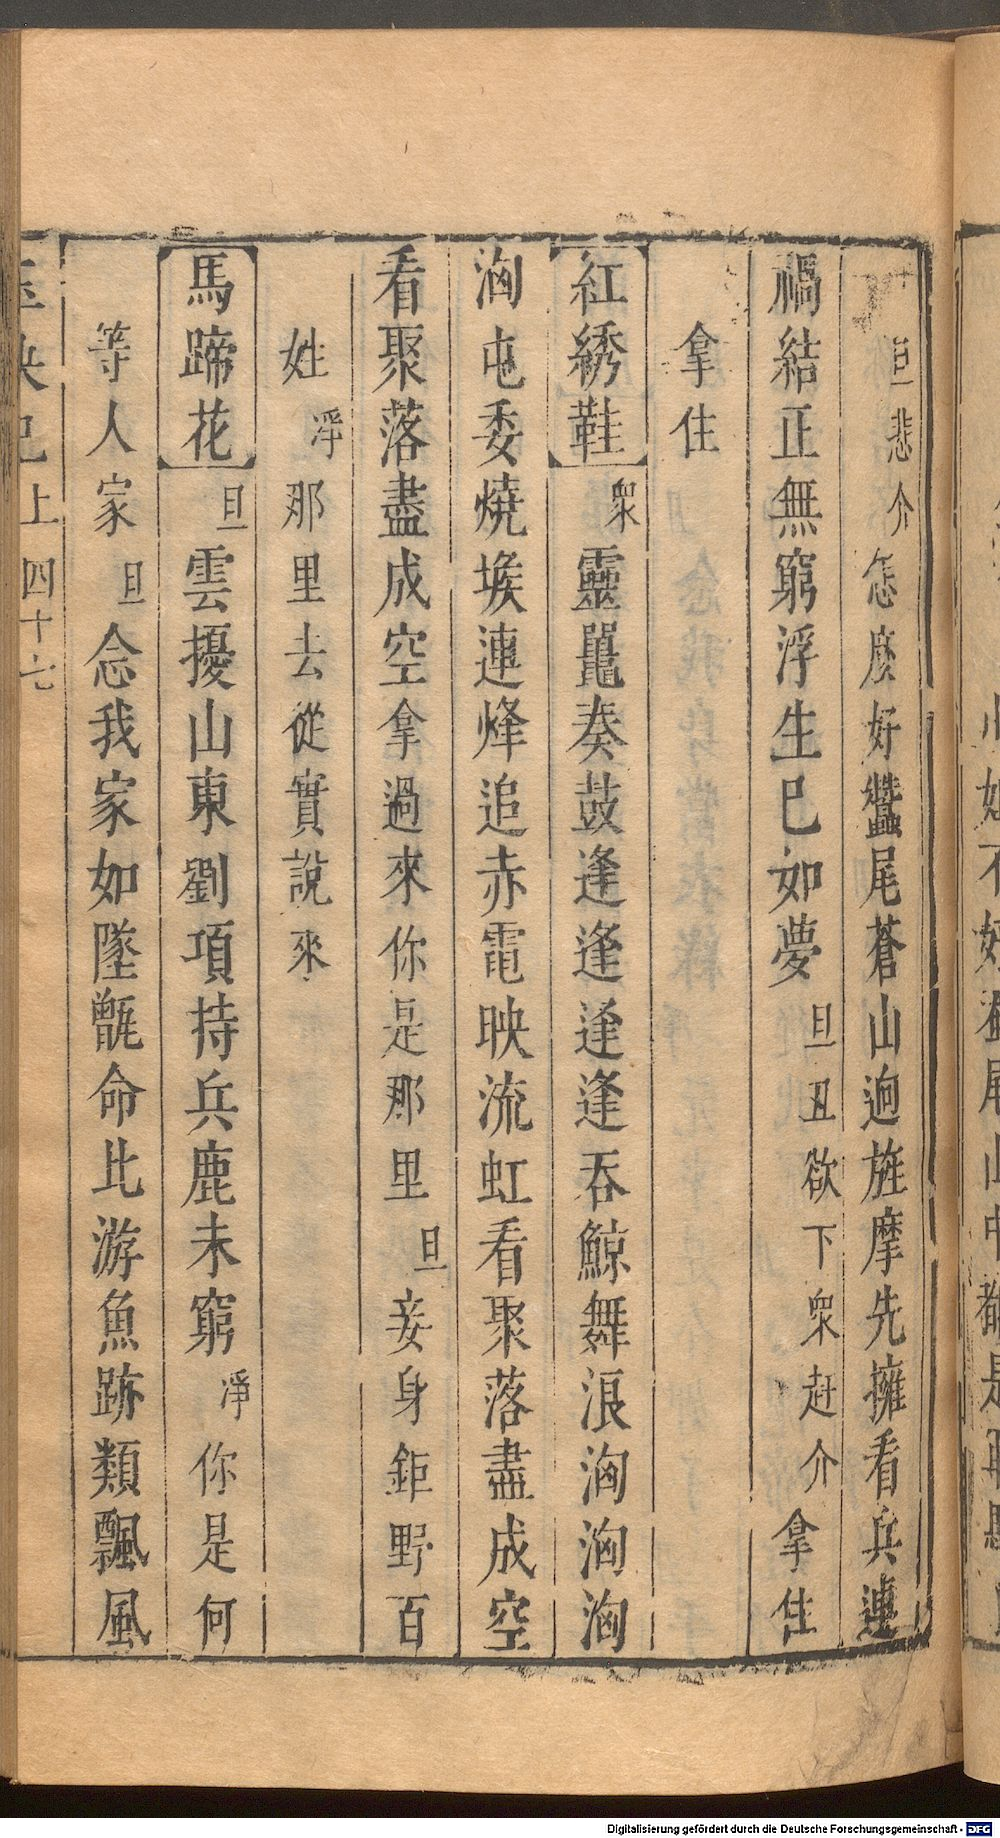 旦悲介怎麽好蠶尾蒼山迥旌摩先擁看兵連
禍結正無窮浮生巳如夢旦丑欲下衆赶介拿住
拿住
紅綉鞋衆靈鼉奏鼓逢逢逢逢吞鯨舞浪洶洶洶
洶屯委燒堠連烽追赤電映流虹看聚落盡成空
看聚落盡成空拿過來你是那里旦妾身鉅野百
姓淨那里去從實說來
馬蹄花旦雲擾山東劉項持兵鹿未窮淨你是何
等人家旦念我家如墜甑命比游魚跡類飄風
上 四十七
Digitalisierung gefördert durch die Deutsche Forschungsgemeinschaft - DFG